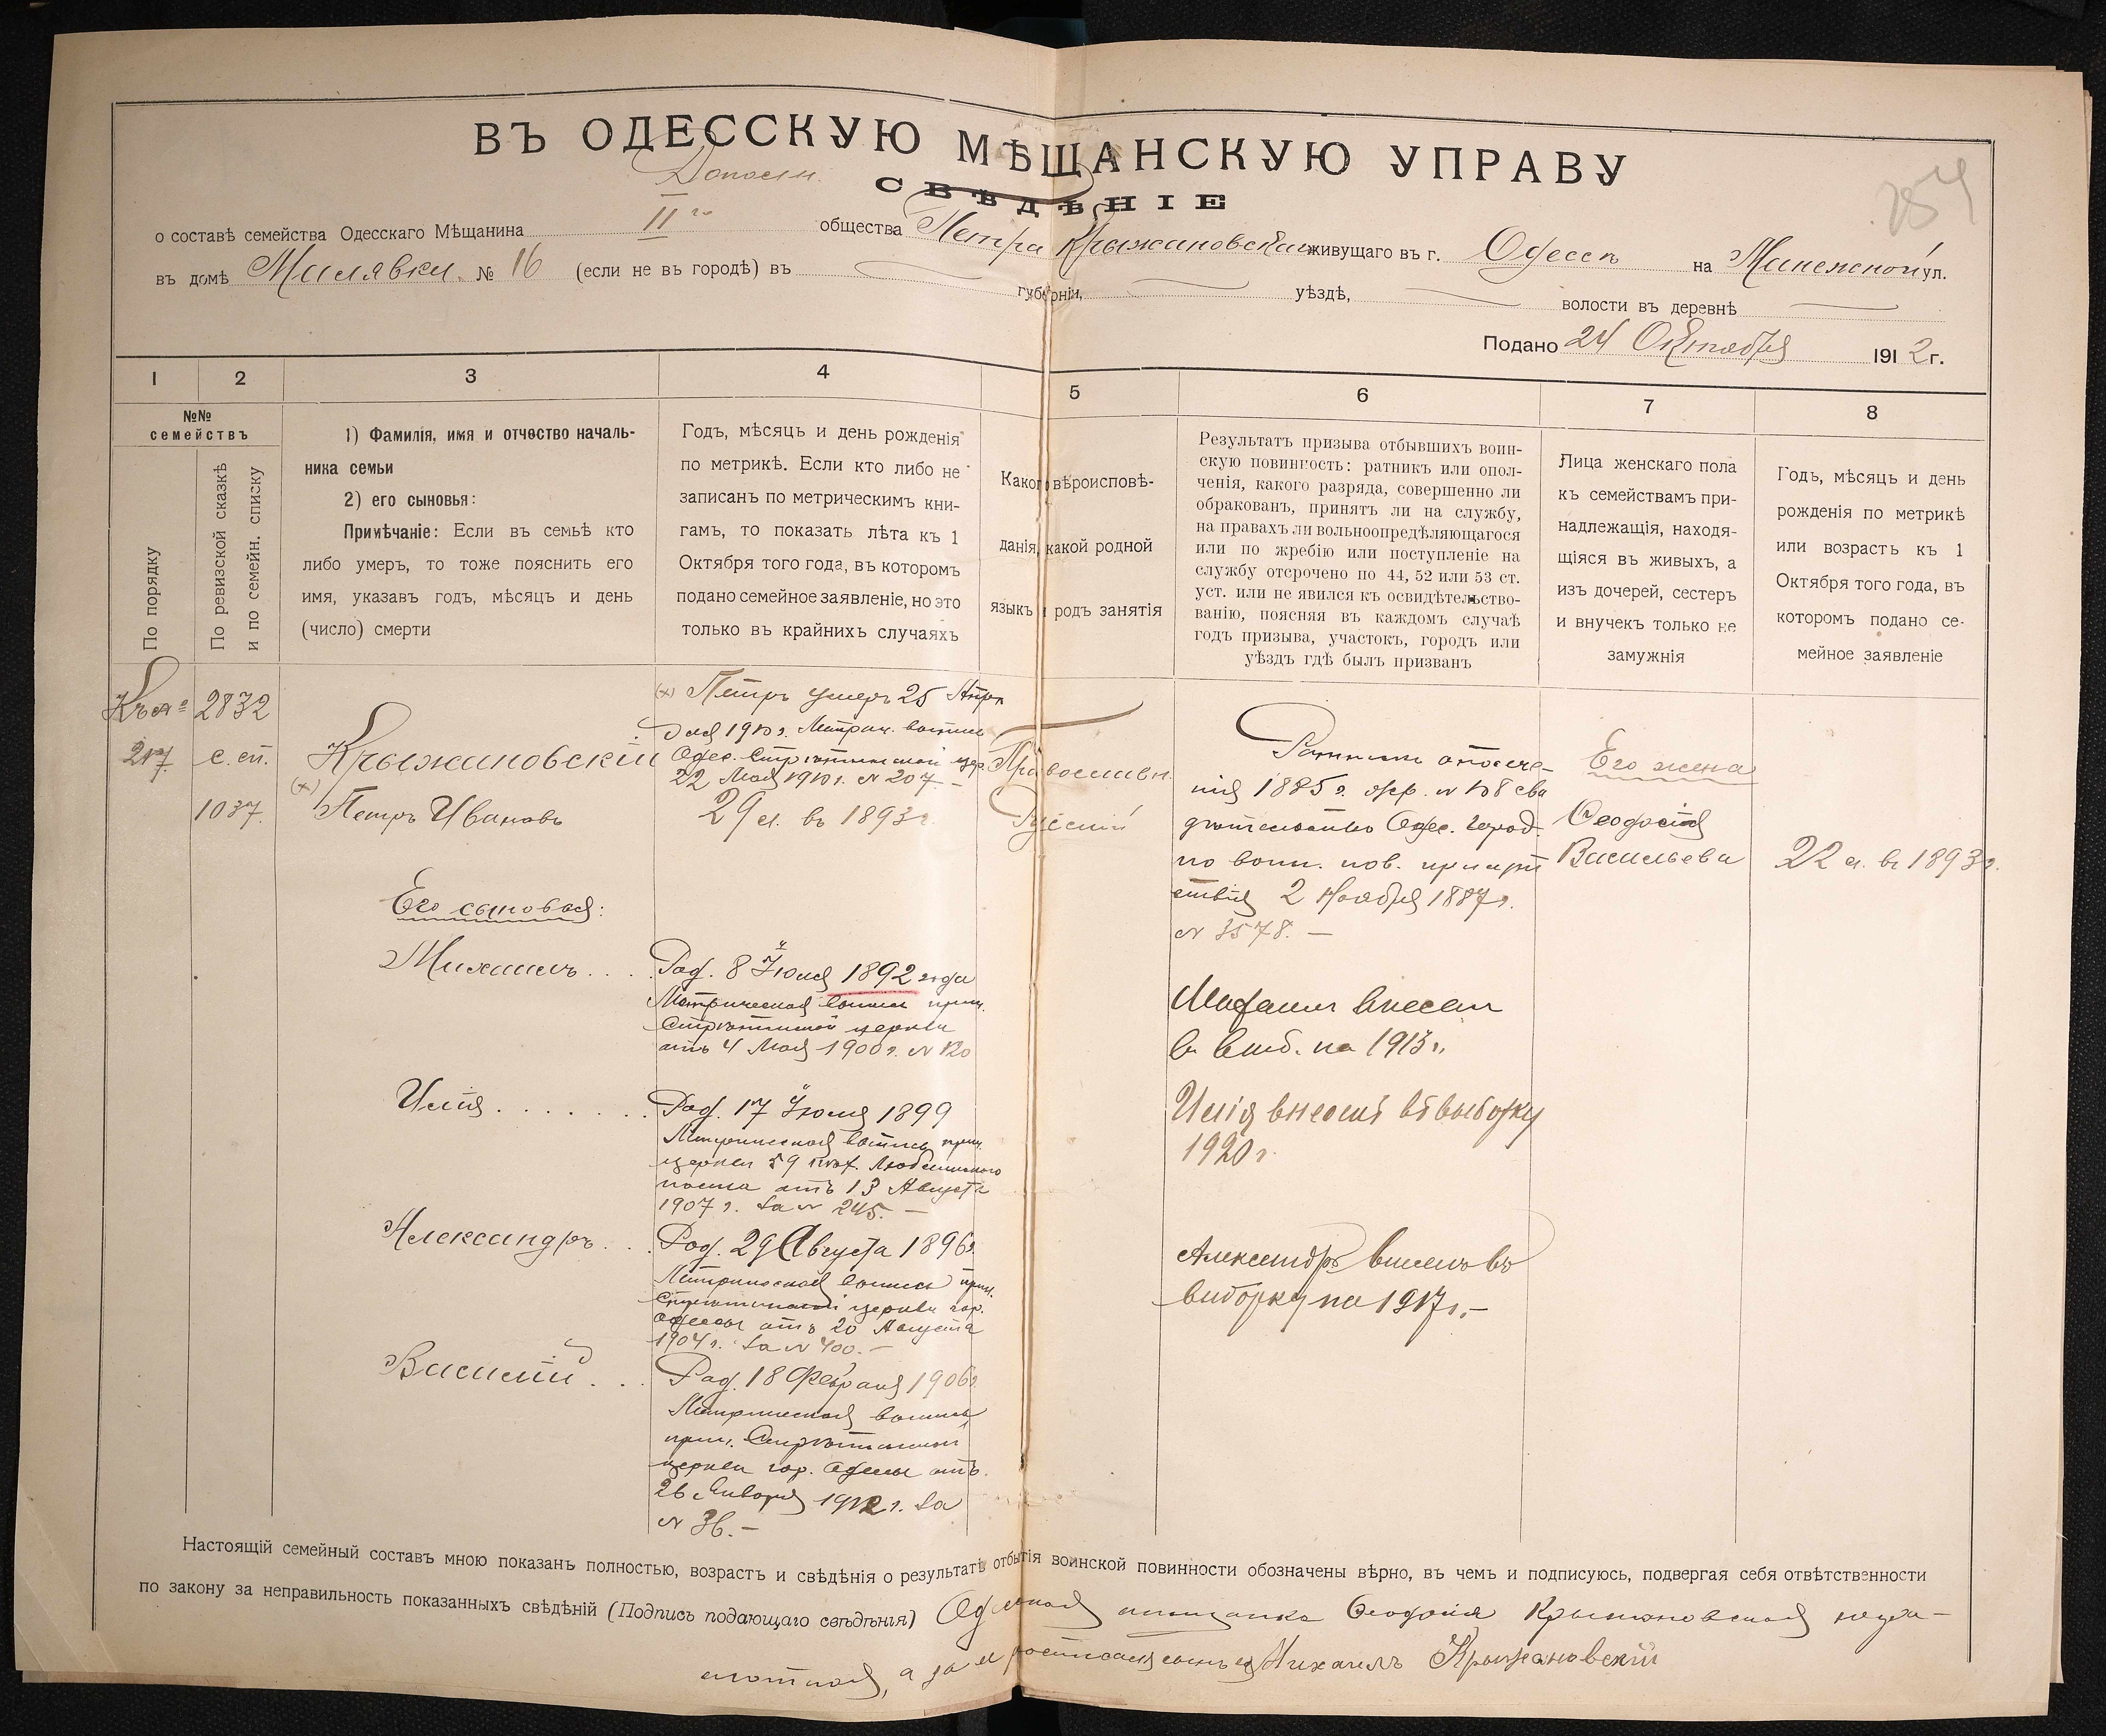 ВЪ ОДЕССКУЮ МѢЩАНСКУЮ УПРАВУ
Дополн.
СВѢДѢНІЕ
254
о составѣ семейства Одесскаго Мѣщанина II го общества Петра Крыжановскаго живущаго въ г. Одессѣ на Манежной ул.
въ домѣ Милявки № 16 (если не въ городѣ) въ губерніи, уѣздѣ, волости въ деревнѣ
Подано 24 Октября 1912 г.
1 2 3 4 5 6 7 8
№№ семействъ
По порядку
По ревизской сказкѣ
и по семейн. списку
1) Фамилія, имя и отчество началь-
ника семьи
2) его сыновья:
Примѣчаніе: Если въ семьѣ кто
либо умеръ, то тоже пояснить его
имя, указавъ годъ, мѣсяцъ и день
(число) смерти
Годъ, мѣсяцъ и день рожденія
по метрикѣ. Если кто либо не
записанъ по метрическимъ кни-
гамъ, то показать лѣта къ 1
Октября того года, въ которомъ
подано семейное заявленіе, но это
только въ крайнихъ случаяхъ
Какого вѣроисповѣ-
данія, какой родной
языкъ и родъ занятія
Результатъ призыва отбывшихъ воин-
скую повинность: ратникъ или опол-
ченія, какого разряда, совершенно ли
обракованъ, принятъ ли на службу,
на правахъ ли вольноопредѣляющагося
или по жребію или поступленіе на
службу отсрочено по 44, 52 или 53 ст.
уст. или не явился къ освидѣтельство-
ванію, поясняя въ каждомъ случаѣ
годъ призыва, участокъ, городъ или
уѣздъ гдѣ былъ призванъ
Лица женскаго пола
къ семействамъ при-
надлежащія, находя-
щіяся въ живыхъ, а
изъ дочерей, сестеръ
и внучекъ только не
замужнія
Годъ, мѣсяцъ и день
рожденія по метрикѣ
или возрастъ къ 1
Октября того года, въ
которомъ подано се-
мейное заявленіе
217.
2832
с. сп.
1037.
Крыжановскій
(х) Петръ Ивановъ
(х) Петръ умеръ 25 Апрѣ
ля 1910 г. Метрич. выпись
Одес. Стурдзинской цер.
22 Мая 1910 г. № 207.
29 л. въ 1893 г.
Православн.
Русскій
Ратникъ ополче-
нія 1885 г. жер. № 108 сви
дѣтельство Одес. город.
по воин. пов. присут
ствія 2 Ноября 1887 г.
№ 3578.
Его жена
Ѳеодосія
Васильева
22 л. въ 1893 г.
Его сыновья:
Михаилъ
Род. 8 Іюля 1892 года
Метрическая выпись прич.
церкви
отъ 4 Мая 1900 г. № 120
Михаилъ внесен
в выб. на 1913 г.
Илія
Род. 17 Іюля 1899
Метрическая выпись прич.
церкви 59 пѣх. Люблинскаго
полка отъ 13 Августа
1907 г. за № 245.
Илія внесенъ въ выборку
1920 г.
Александръ
Род. 29 Августа 1896 г.
Метрическая выпись прич.
церкви гор.
Одессы отъ 20 Августа
1904 г. за № 400.
Александръ внесенъ въ
выборку на 1917 г.
Василій
Род. 18 Февраля 1906 г.
Метрическая выпись
прич.
церкви гор. Одессы отъ
26 Января 1912 г. за
№ 36.
Настоящій семейный составъ мною показанъ полностью, возрастъ и свѣдѣнія о результатѣ отбытія воинской повинности обозначены вѣрно, въ чемъ и подписуюсь, подвергая себя отвѣтственности
по закону за неправильность показанныхъ свѣдѣній (Подпись подающаго свѣдѣнія) Одесская мѣщанка Ѳеодосія Крыжановская негра-
мотная, а за я росписался сынъ ея Михаилъ Крыжановскій